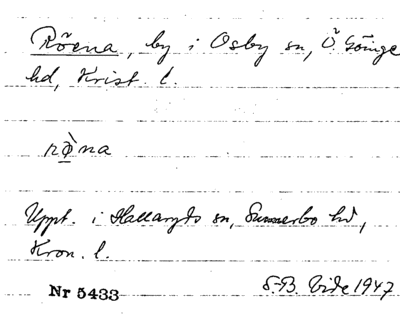 Röena, by i Osby sn, Ö Göinge
hd, Krist. l.
rø̀na
Uppt. i Hallaryds sn, Sunnerbo hd,
Kron. l.
Nr 5433 S-B. Vide 1947